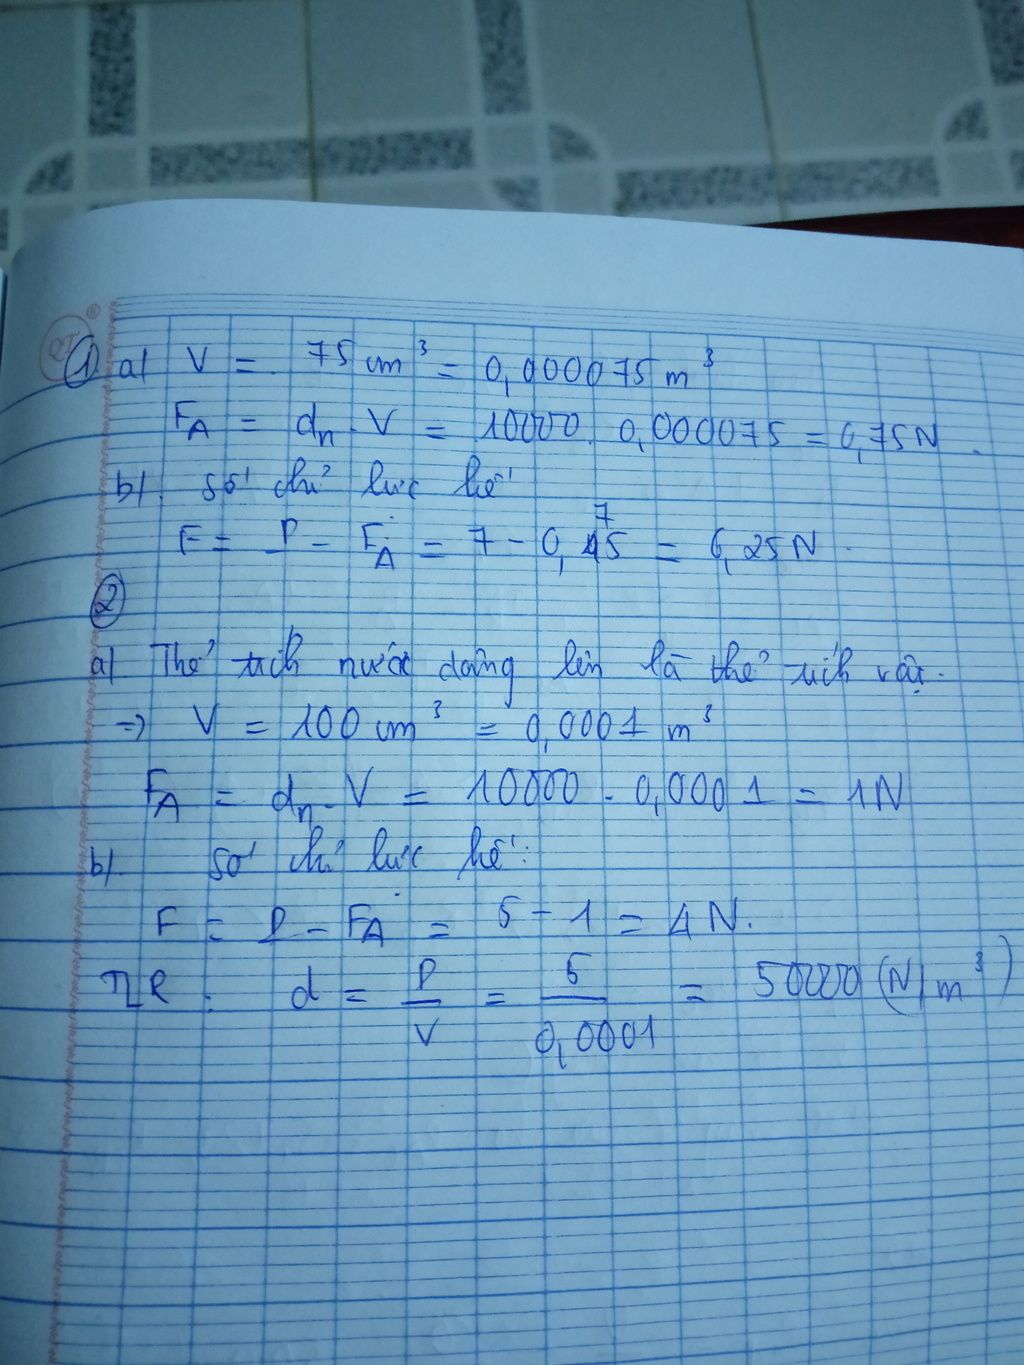 ① a) V = 75 cm³ = 0,000075 m³
F_A = d_n . V = 10000 . 0,000075 = 0,75N.
b) số chỉ lực kế
F = P - F_A = 7 - 0,75 = 6,25N.
②
a) Thể tích nước dâng lên là thể tích vật.
=> V = 100 cm³ = 0,0001 m³
F_A = d_n . V = 10000 . 0,0001 = 1N
b) số chỉ lực kế:
F = P - F_A = 5 - 1 = 4N.
TLR: d = P/V = 5/0,0001 = 50000 (N/m³)